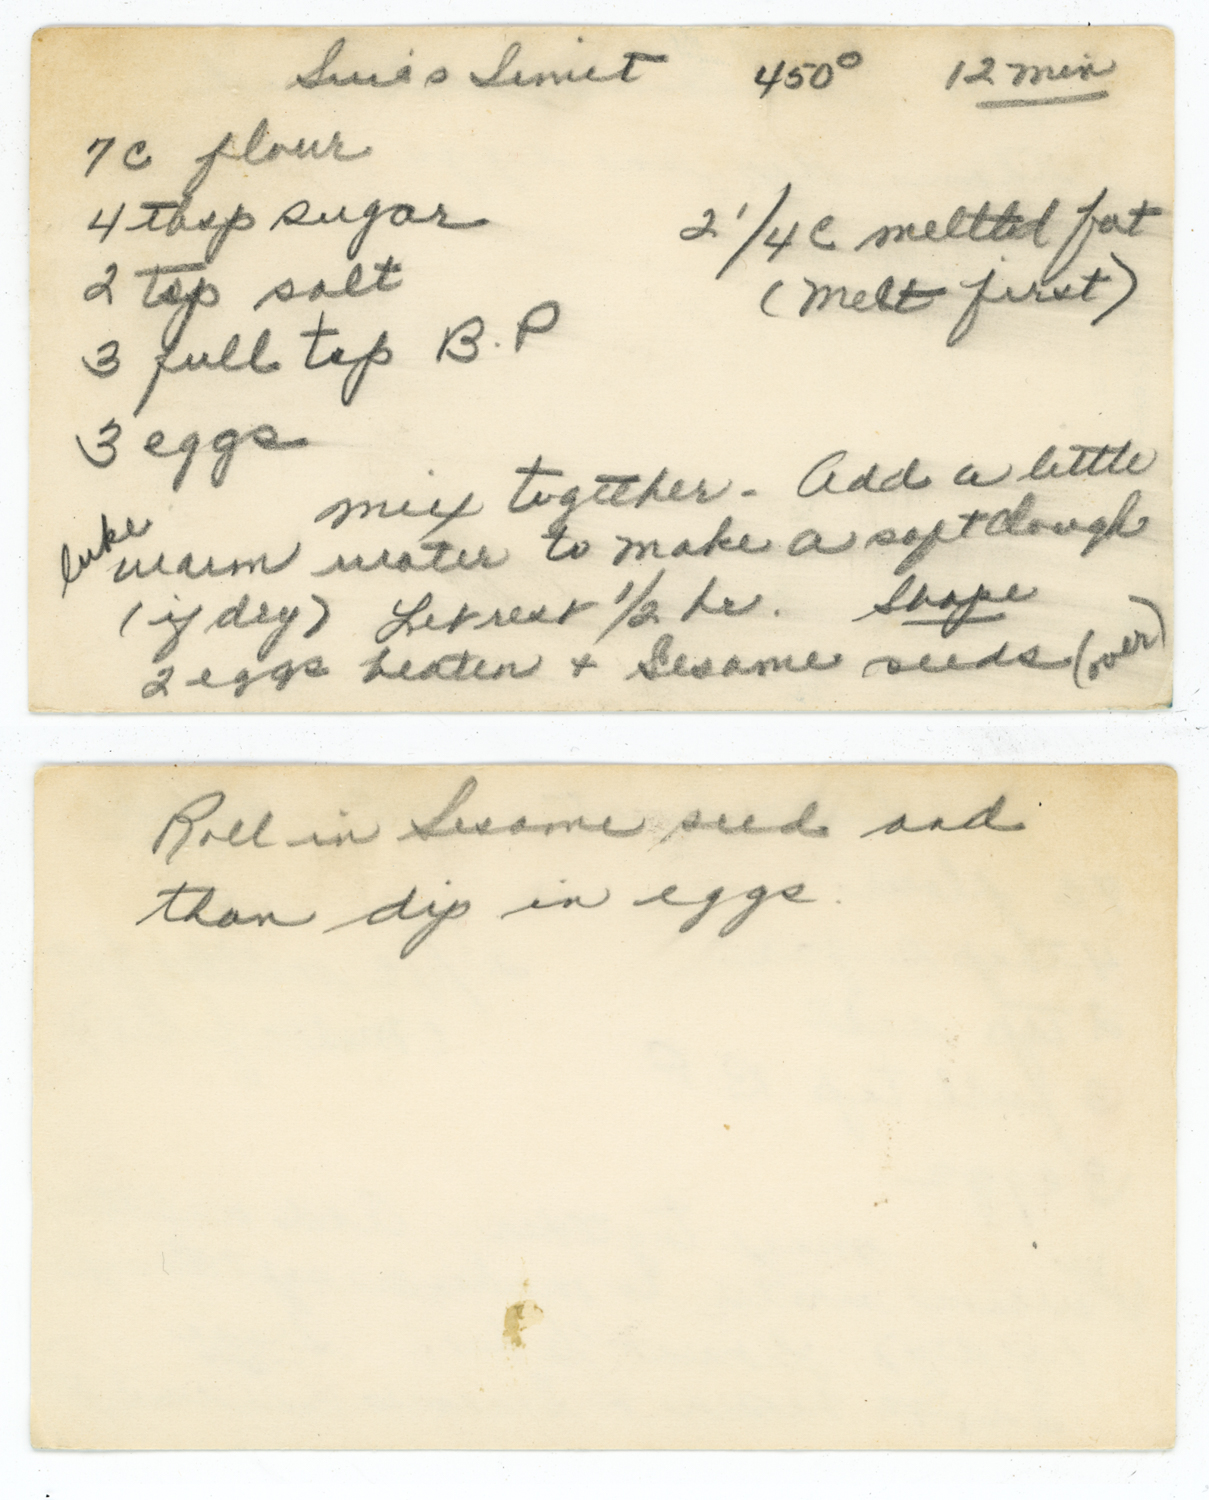 Suio's Simit 450° 12 min
7 c flour
4 tbsp sugar
2 1/4 c meltted fat
2 tsp salt
(Melt first)
3 full tsp B.P
3 eggs
mix togther - Add a little
luke warm water to make a soft dough
(if dry) Let rest 1/2 hr. Shape
2 eggs beaten + Sesame seeds (over)
Roll in Sesame seed and
than dip in eggs.